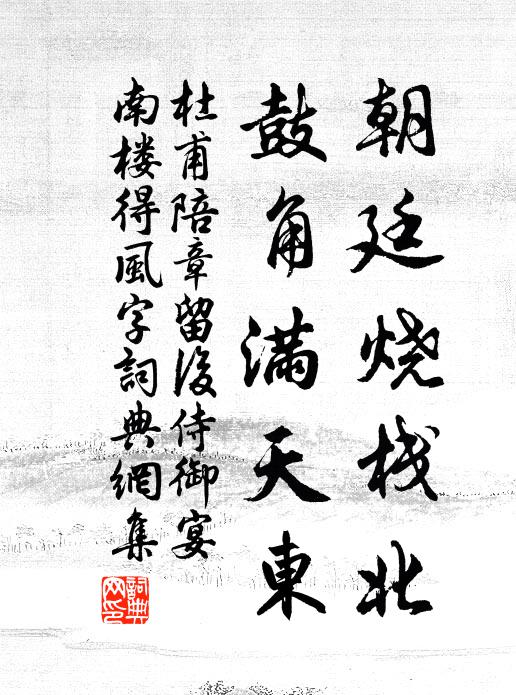 朝廷烧栈北
鼓角满天東
杜甫陪章留後侍御宴
南楼得風字詞典網集
詞典
网印